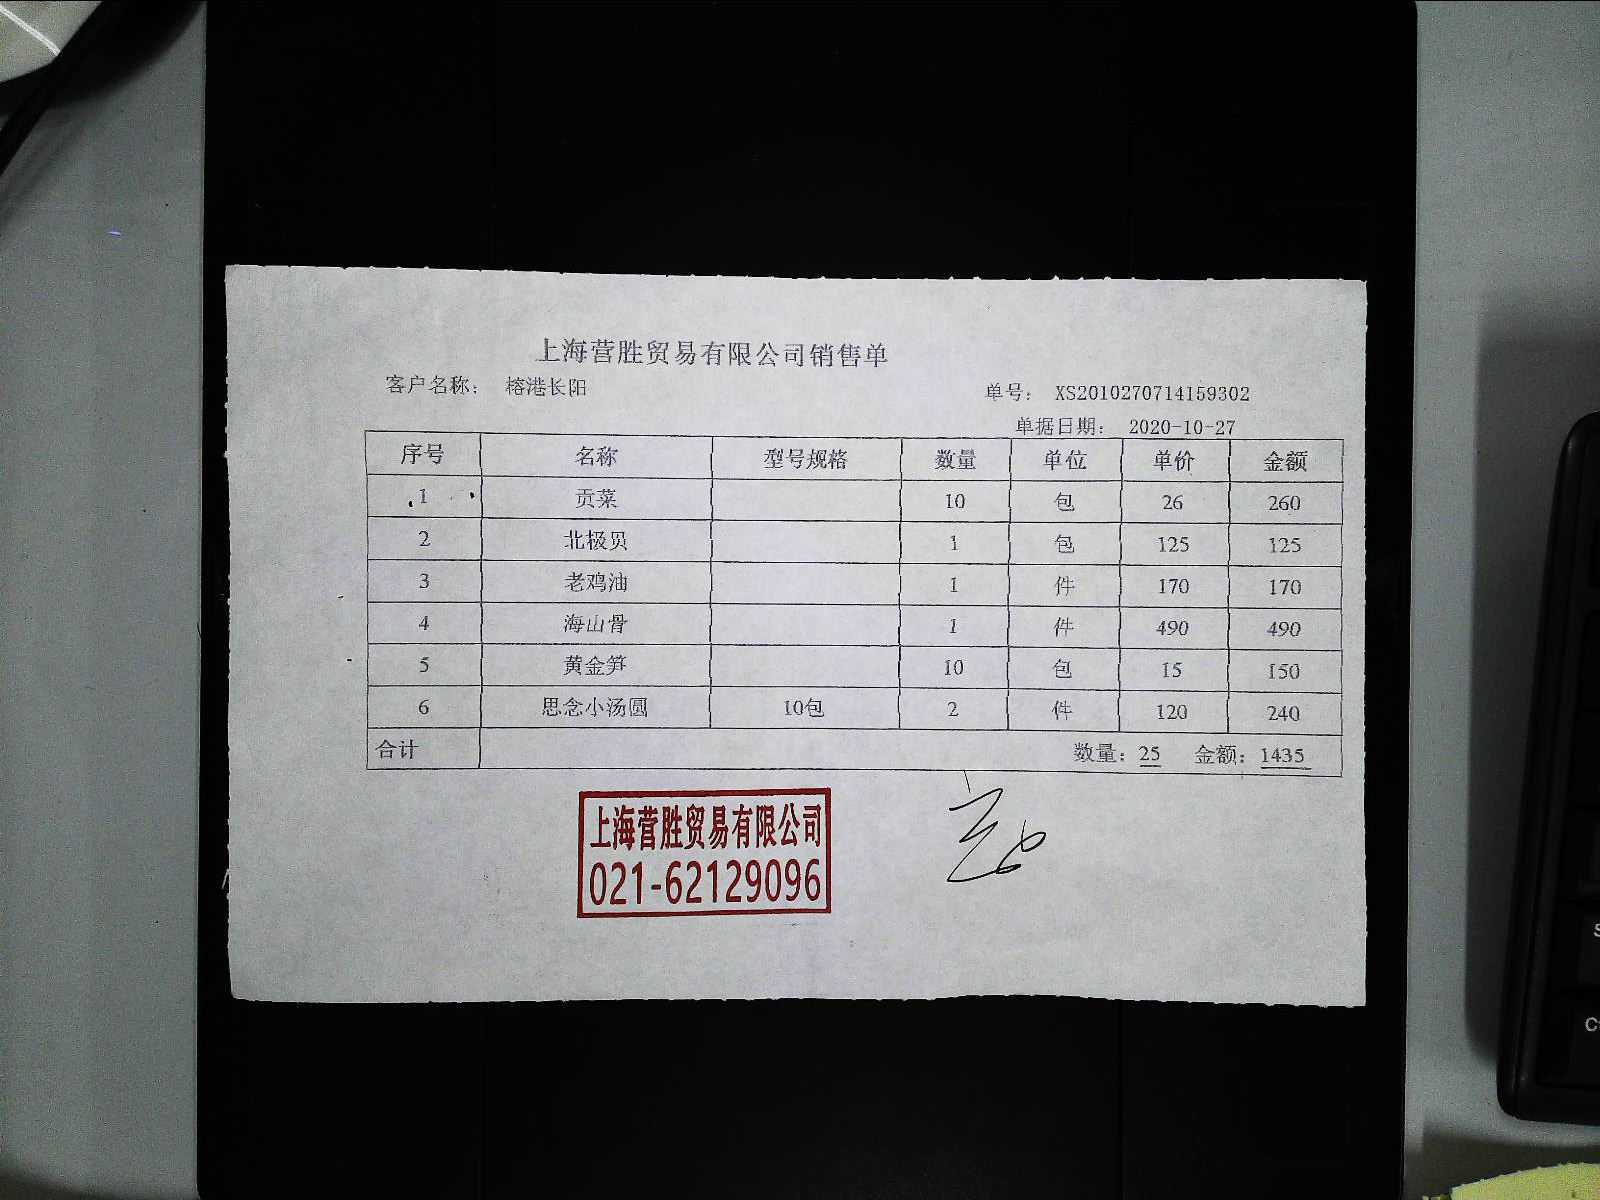 上海营胜贸易有限公司销售单
客户名称： 榕港长阳 单号： XS2010270714159302
单据日期： 2020-10-27
序号 名称 型号规格 数量 单位 单价 金额
1 贡菜 10 包 26 260
2 北极贝 1 包 125 125
3 老鸡油 1 件 170 170
4 海山骨 1 件 490 490
5 黄金笋 10 包 15 150
6 思念小汤圆 10包 2 件 120 240
合计 数量：25 金额：1435
上海营胜贸易有限公司
021-62129096